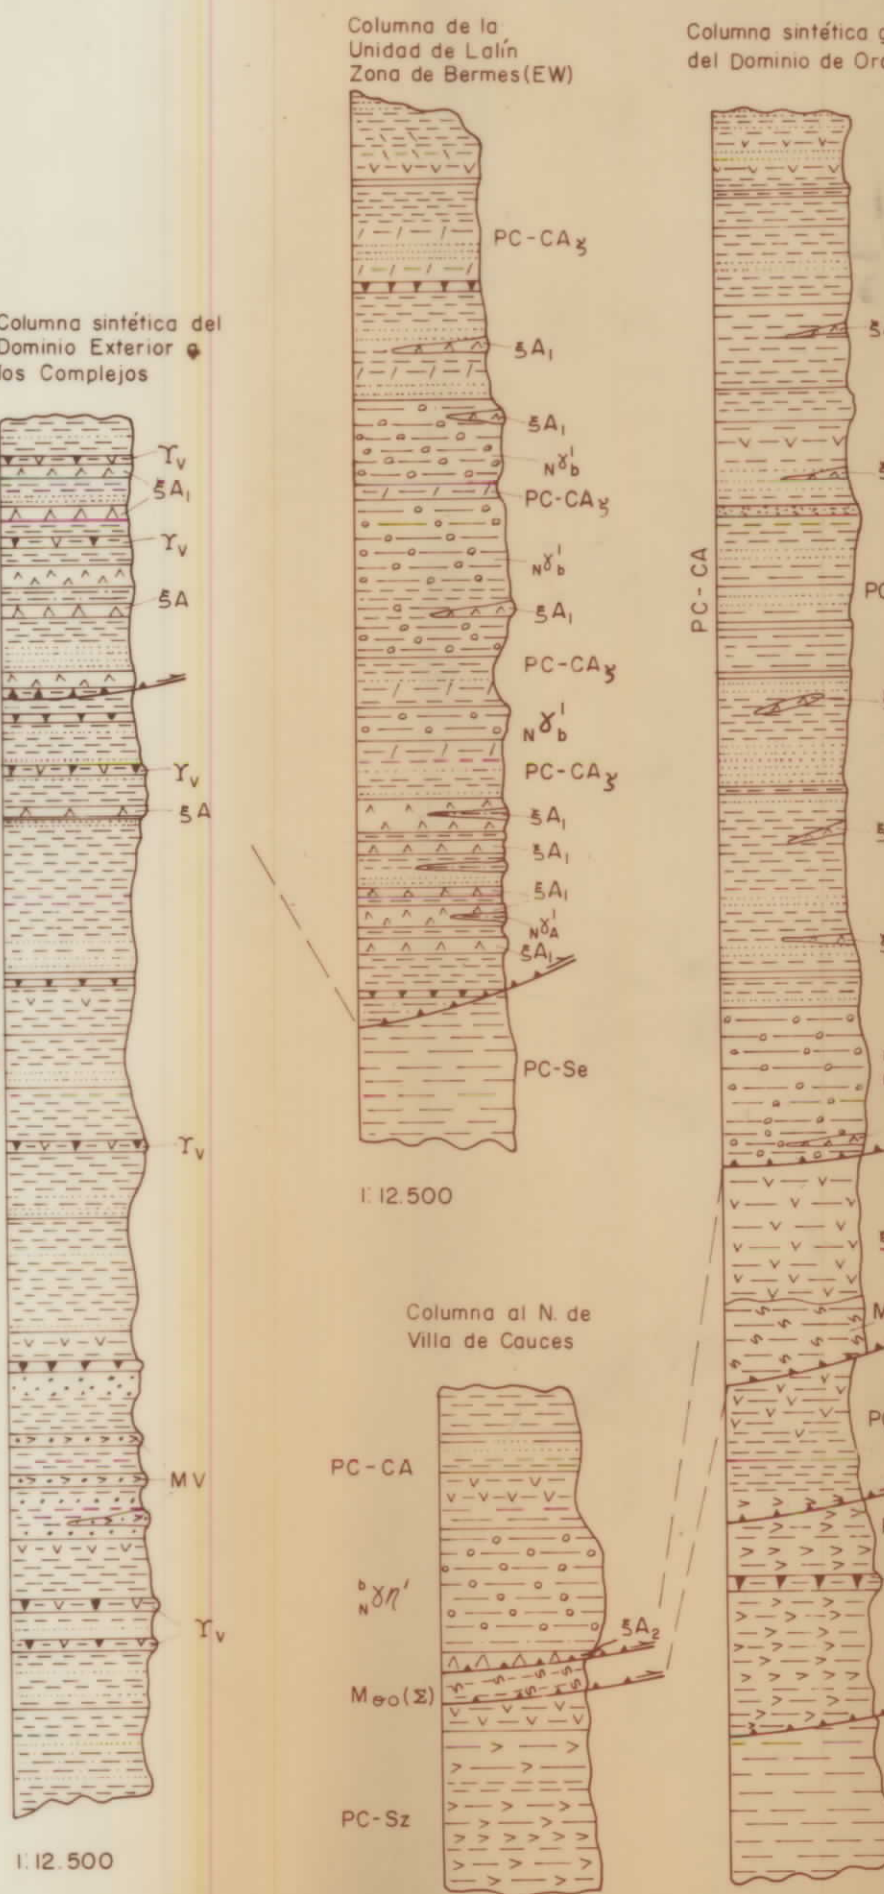 Columna sintética del
Dominio Exterior a
los Complejos
ϒv
ξA₁
ϒv
ξA
ϒv
ξA
ϒv
MV
ϒv
1:12.500
Columna de la
Unidad de Lalín
Zona de Bermes (EW)
PC-CAξ
ξA₁
ξA₁
Nγb'
PC-CAξ
Nγb'
ξA₁
PC-CAξ
Nγb'
PC-CAξ
ξA₁
ξA₁
ξA₁
NγA'
ξA₁
PC-Se
1:12.500
Columna al N. de
Villa de Cauces
PC-CA
bNγη'
ξA₂
Mθo(Σ)
PC-Sz
Columna sintética
del Dominio de
PC-CA